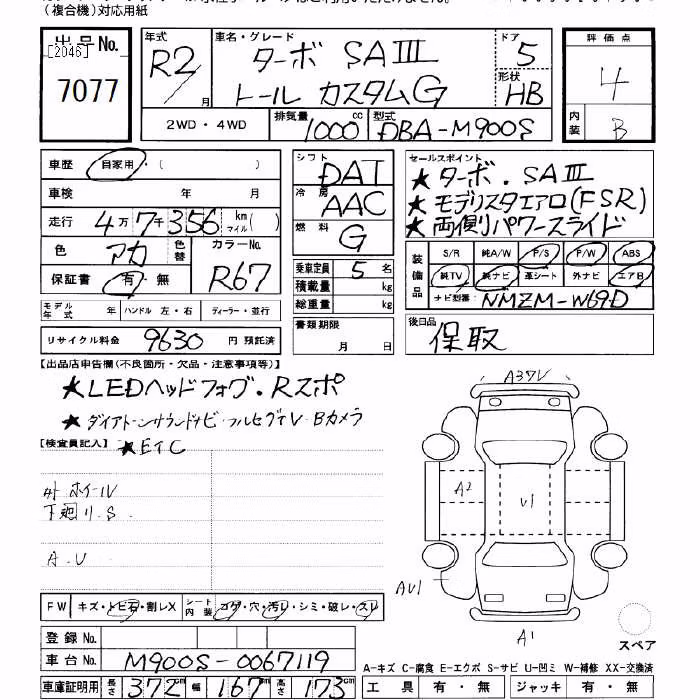 （複合機）対応用紙
出品No.
[2046]
7077
年式 R2/ 月
車名・グレード
ターボ SAⅢ
トール カスタムG
ドア 5
形状 HB
2WD・4WD
排気量 1000 cc 型式 DBA-M900S
評価点
4
内装 B
車歴 自家用・( )
車検 年 月
走行 4万7千356 km マイル( )
色 アカ 色替 カラーNo. R67
保証書 有・無
モデル年式 年 ハンドル 左・右 ディーラー・並行
リサイクル料金 9630 円 預託済
シフト DAT
冷房 AAC
燃料 G
乗車定員 5 名
積載量 kg
総重量 kg
書類期限
月 日
セールスポイント
★ターボ.SAⅢ
★モデリスタエアロ(FSR)
★両側パワースライド
装備品
S/R 純A/W P/S P/W ABS
純TV 純ナビ 革シート 外ナビ エアB
ナビ型番 NMZM-W69D
後日品
保取
【出品店申告欄(不良箇所・欠品・注意事項等)】
★LEDヘッドフォグ.Rスポ
★ダイアトーンサウンドナビ・フルセグTV・Bカメラ
【検査員記入】 ★ETC
ホイール
下廻り.S
A.U
FW キズ・トビ石・割レX シート内装 コゲ・穴・汚レ・シミ・破レ・スレ
登録No.
車台No. M900S-0067119
車庫証明用 長さ 372 cm 幅 167 cm 高さ 173 cm
A2
U1
A1
スペア
A-キズ C-腐食 E-エクボ S-サビ U-凹ミ W-補修 XX-交換済
工具 有・無 ジャッキ 有・無